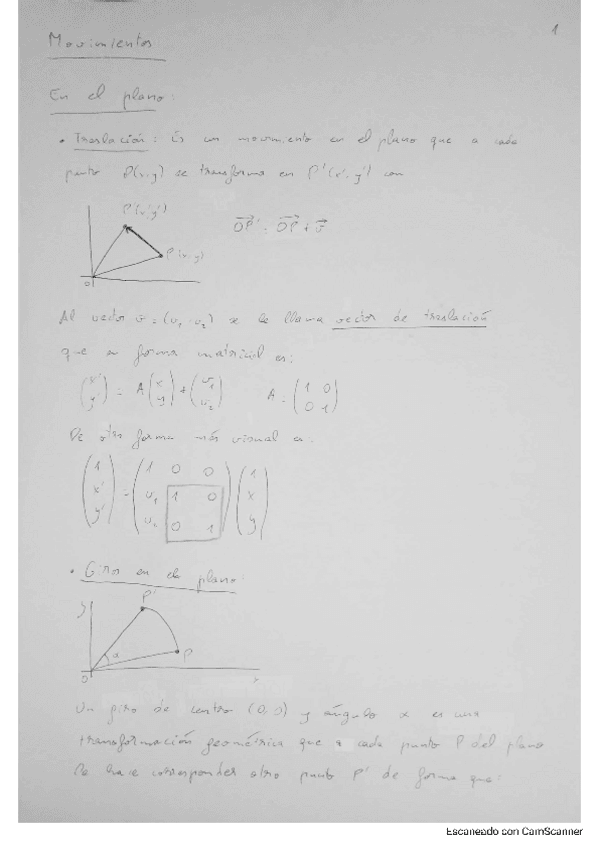 1
Movimientos
En el plano:
• Traslación: Es un movimiento en el plano que a cada
punto P(x,y) se transforma en P'(x',y') con
P'(x',y')
P(x,y)
0
OP' = OP + v
Al vector v = (v₁, v₂) se le llama vector de traslación
que en forma matricial es:
(x' y') = A (x y) + (v₁ v₂) A = (1 0 0 1)
De otra forma más visual es:
(1 x' y') = (1 0 0 v₁ 1 0 v₂ 0 1) (1 x y)
• Giro en el plano:
y
P'
α
P
0
x
Un giro de centro (0,0) y ángulo α es una
transformación geométrica que a cada punto P del plano
le hace corresponder otro punto P' de forma que:
Escaneado con CamScanner